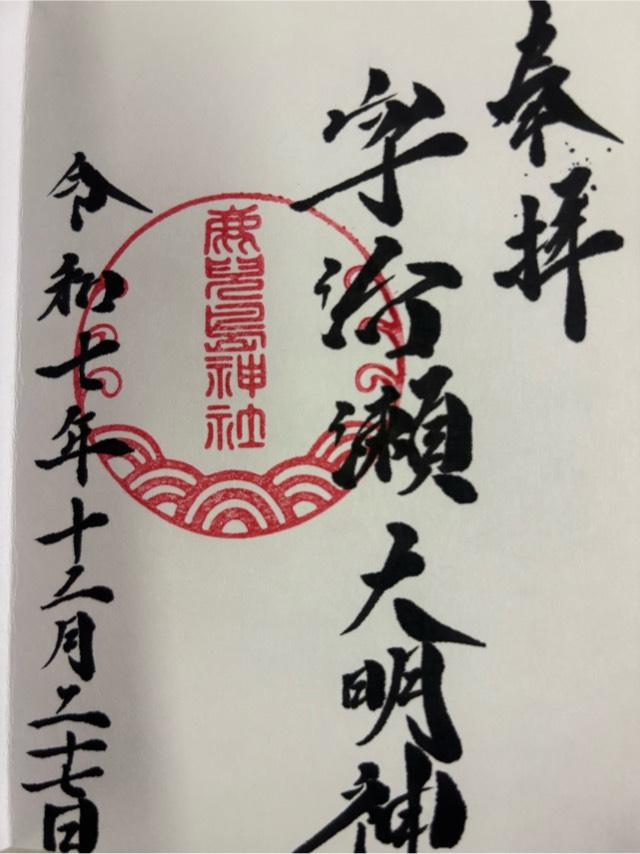 奉拝
宇治瀬大明神
鹿兒島神社
令和七年十二月二十七日